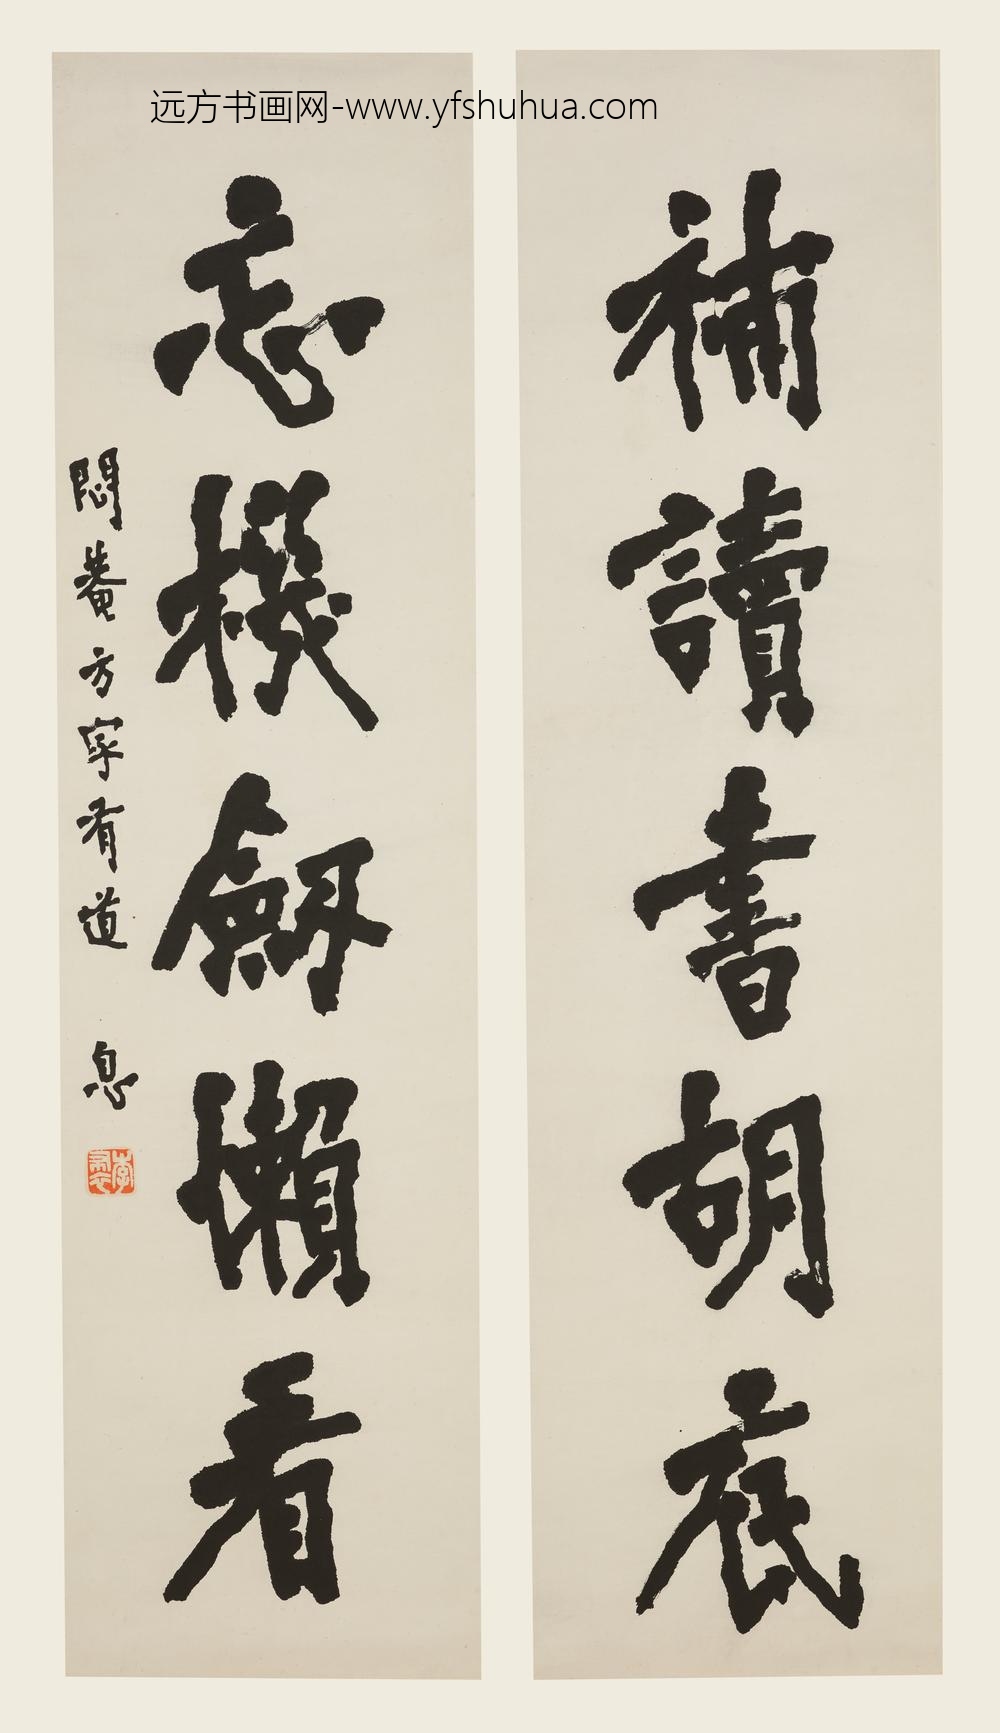 远方书画网-www.yfshuhua.com
補讀書胡底
忘機劒懶看
悶菴方家有道 息